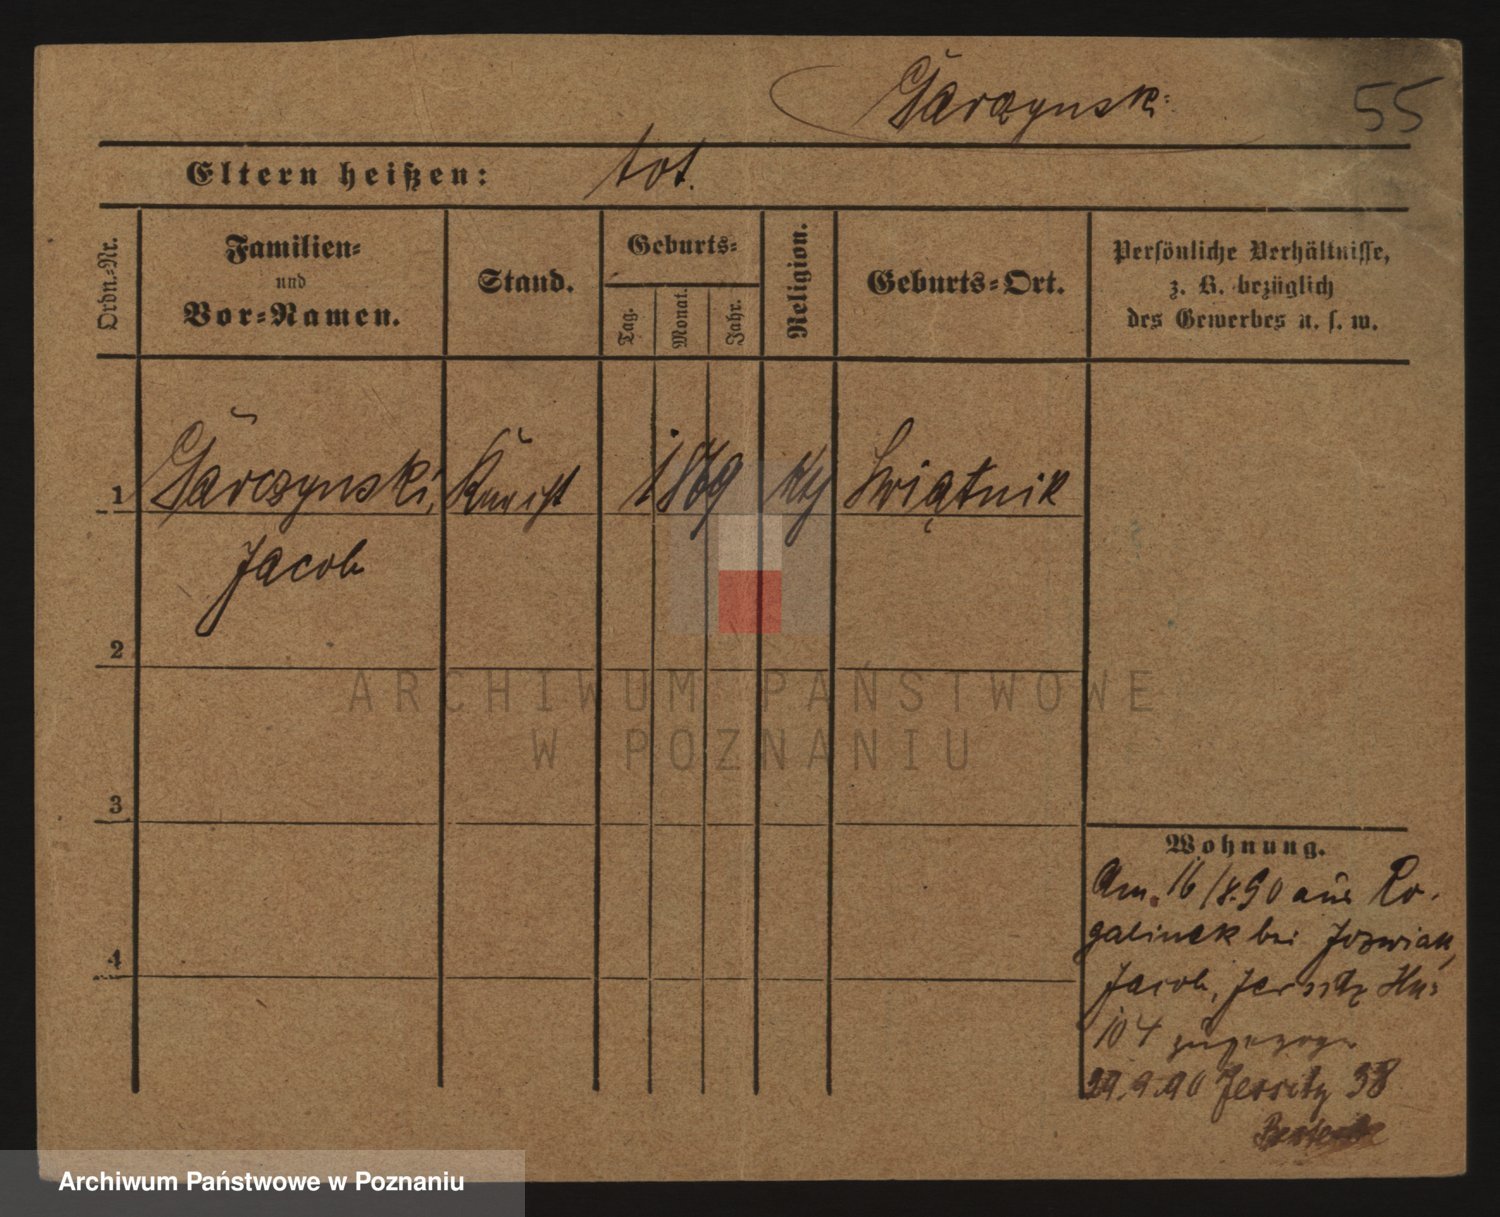 Garczynski
55
Eltern heißen: tot.
Ordn.-Nr.
Familien-
und
Vor-Namen.
Stand.
Geburts-
Tag.
Monat.
Jahr.
Religion.
Geburts-Ort.
Persönliche Verhältnisse,
z. B. bezüglich
des Gewerbes u. s. w.
1 Garczynski, Knecht 1869 Swiątnik
Jacob
2
ARCHIWUM PAŃSTWOWE
W POZNANIU
3
Wohnung.
Am 16/8.90 aus Ro-
galinek bei Jozwiak,
Jacob, Jersitz
104
29.9.90 Jersitz 38
4
Archiwum Państwowe w Poznaniu